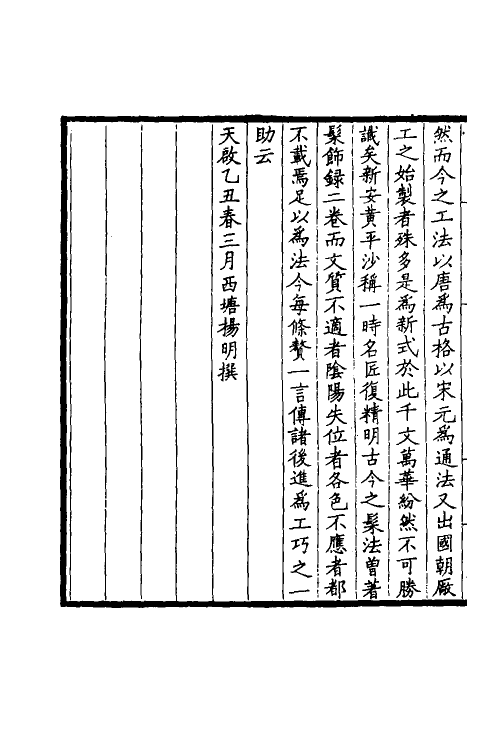 然而今之工法以唐爲古格以宋元爲通法又出國朝厰
工之始製者殊多是爲新式於此千文萬華紛然不可勝
識矣新安黃平沙稱一時名匠復精明古今之髹法曽著
髹飾録二卷而文質不適者陰陽失位者各色不應者都
不載焉足以爲法今每條贅一言傳諸後進爲工巧之一
助云
天啟乙丑春三月西塘揚明撰